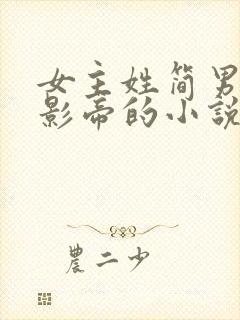 女主姓简男
影帝的小說
農二少